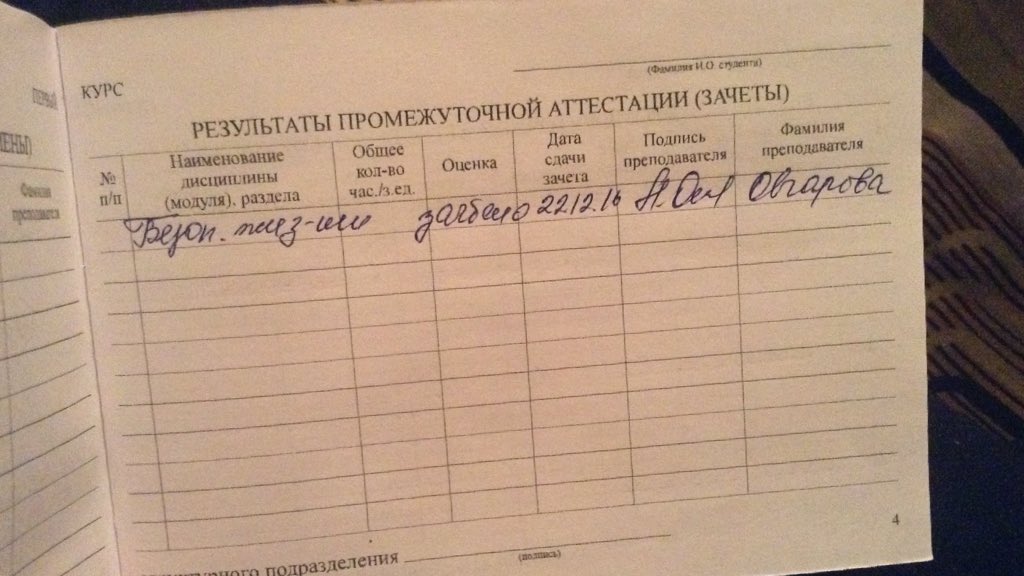 ПЕРВЫЙ
КУРС
(Фамилия И.О. студента)
РЕЗУЛЬТАТЫ ПРОМЕЖУТОЧНОЙ АТТЕСТАЦИИ (ЗАЧЕТЫ)
№ п/п
Наименование дисциплины (модуля), раздела
Общее кол-во час./з.ед.
Оценка
Дата сдачи зачета
Подпись преподавателя
Фамилия преподавателя
Безоп. зачтено 22.12.16
Фамилия
преподавателя
подразделения
(подпись)
4